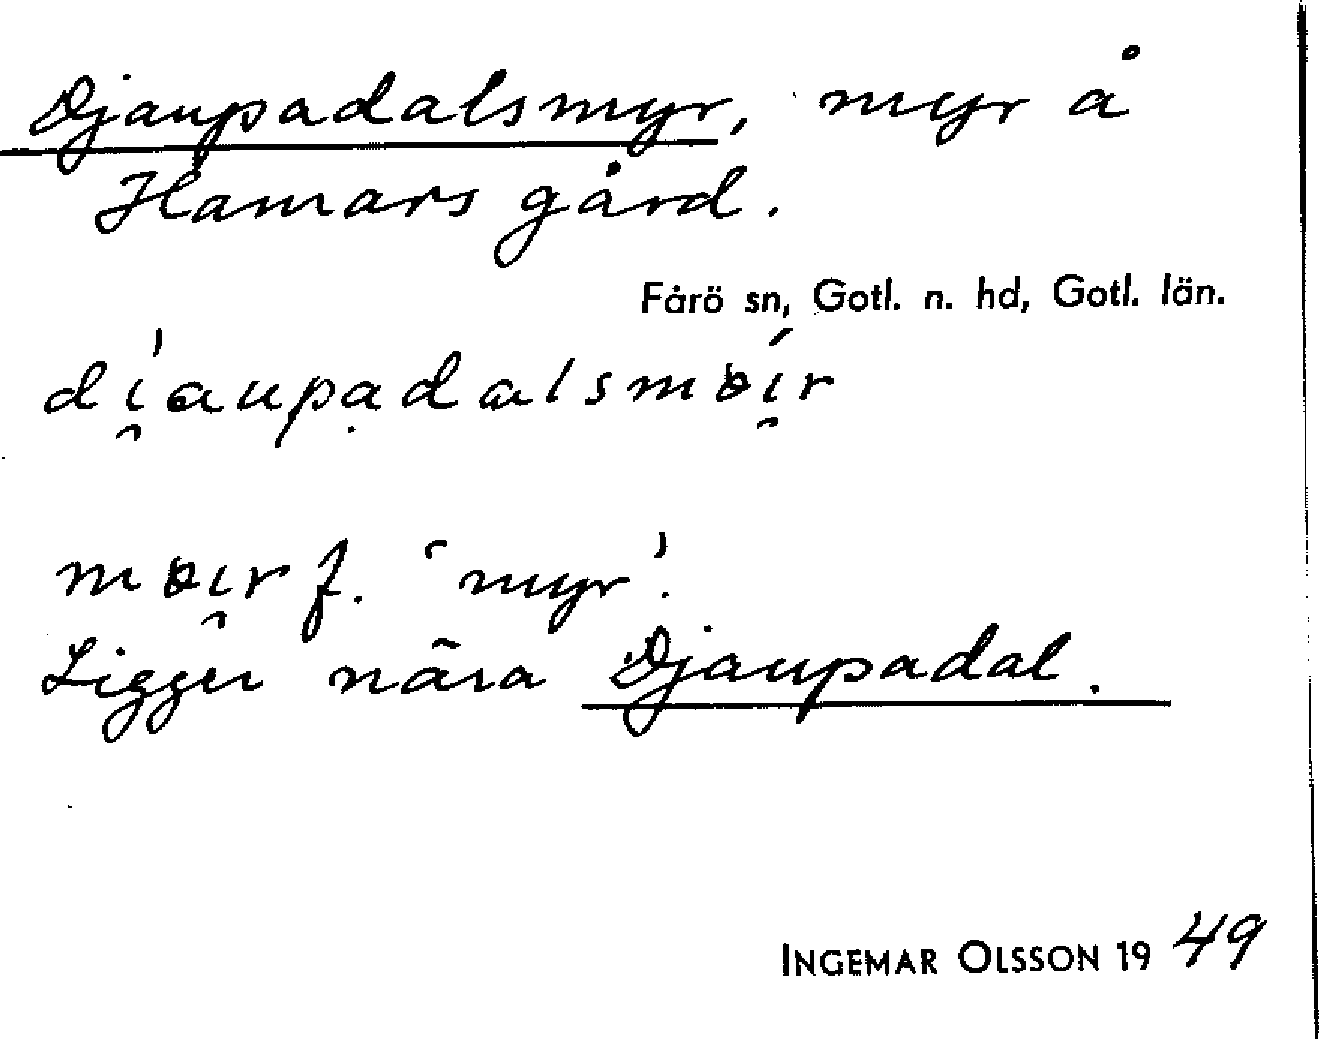 Djaupadalsmyr, myr å
Hamars gård.
Fårö sn, Gotl. n. hd, Gotl. län.
di̯áupạdalsmɵí̯r
mɵi̯r f. 'myr'.
Ligger nära Djaupadal.
INGEMAR OLSSON 1949